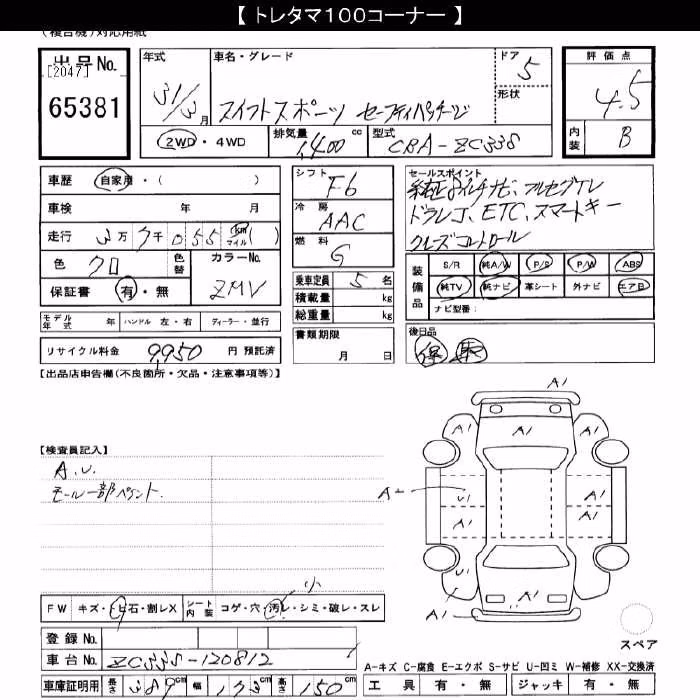 【 トレタマ100コーナー 】
(複合機)対応用紙
出品No. [2047]
65381
年式 31/3月
車名・グレード
スイフトスポーツ セーフティパッケージ
ドア 5
形状
評価点 4.5
内装 B
2WD・4WD
排気量 1,400 cc
型式 CBA-ZC33S
車歴 自家用・( )
車検 年 月
走行 3万7千055 km マイル ( )
色 クロ 色替
カラーNo. ZMV
保証書 有・無
シフト F6
冷房 AAC
燃料 G
乗車定員 5 名
積載量 kg
総重量 kg
セールスポイント
純正8インチナビ、フルセグTV
ドラレコ、ETC、スマートキー
クルーズコントロール
装備品
S/R 純A/W P/S P/W ABS
純TV 純ナビ 革シート 外ナビ エアB
ナビ型番:
モデル年式 年 ハンドル 左・右 ディーラー・並行
リサイクル料金 9,950 円 預託済
書類期限
月 日
後日品
保 取
【出品店申告欄(不良個所・欠品・注意事項等)】
【検査員記入】
A.U.
モール一部ペイント
A1
A1
A1
A1
A-
U1
A1
A1
A1
U1
A1
A1
小
FW キズ・ヒビ石・割レX
シート内装 コゲ・穴・汚レ・シミ・破レ・スレ
登録No.
車台No. ZC33S-120812
車庫証明用 長さ 389 cm 幅 173 cm 高さ 150 cm
スペア
A-キズ C-腐食 E-エクボ S-サビ U-凹ミ W-補修 XX-交換済
工具 有・無 ジャッキ 有・無